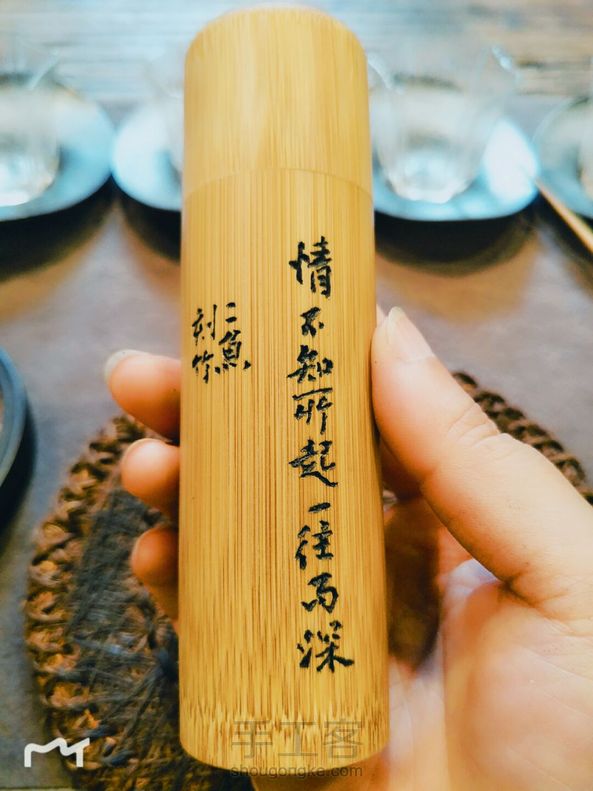 情不知所起一往而深
二魚
刻竹
手工客
shougongke.com